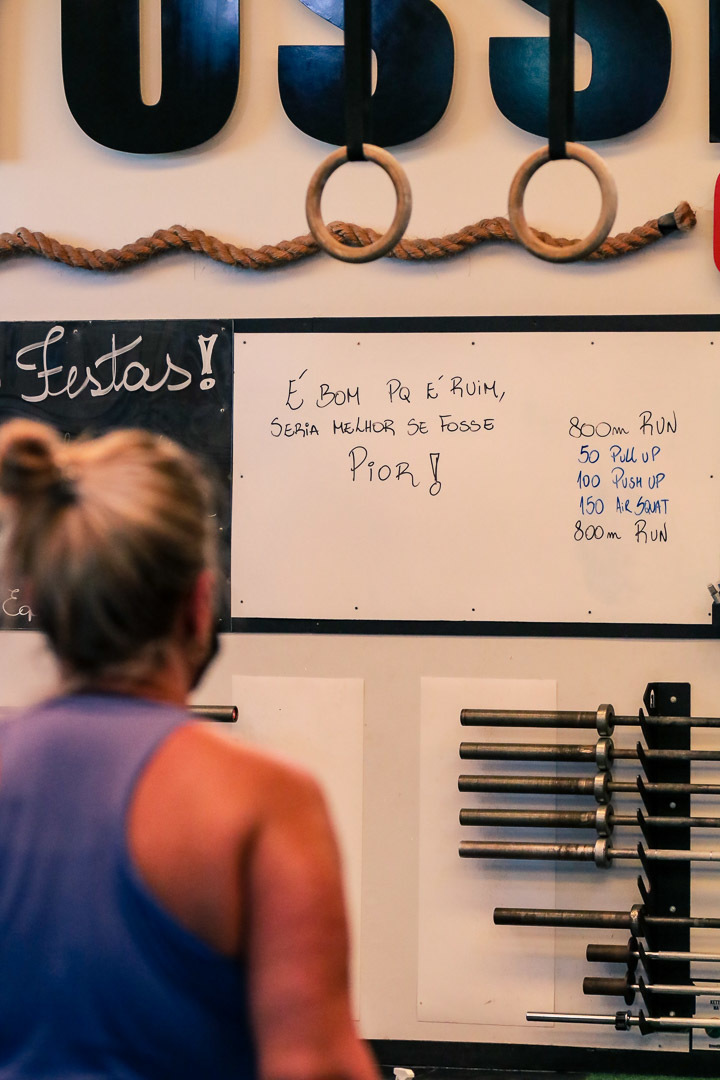 Festas!
É BOM PQ É RUIM,
SERIA MELHOR SE FOSSE
PIOR!
800m RUN
50 PULL UP
100 PUSH UP
150 AIR SQUAT
800m RUN